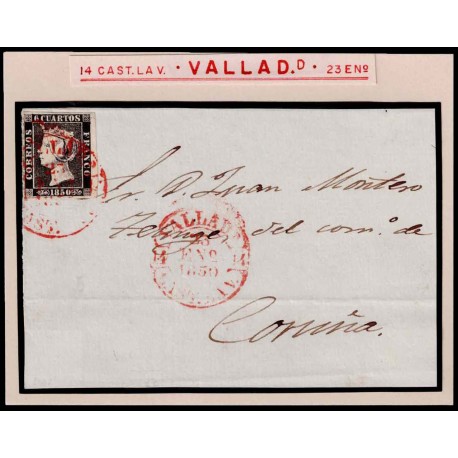 14 CAST. LA V. · VALLAD.D · 23 ENº
6 CUARTOS
CORREOS
FRANCO
1850
Sr. D. Juan Montero
del com.º de
Coruña.
VALLAD
23
ENº
1850